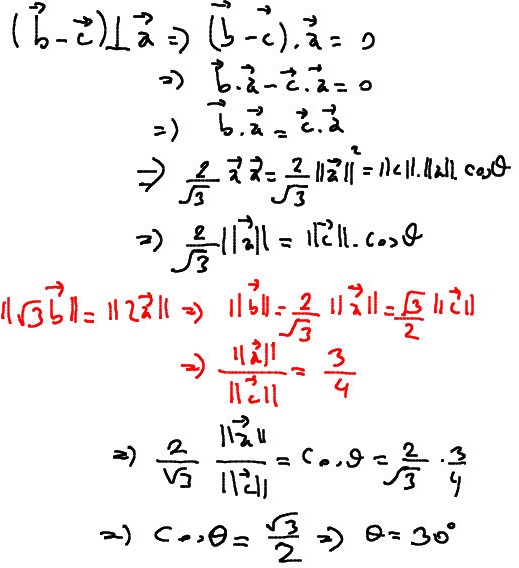 (b⃗ - c⃗) ⊥ a⃗ => (b⃗ - c⃗) . a⃗ = 0
=> b⃗ . a⃗ - c⃗ . a⃗ = 0
=> b⃗ . a⃗ = c⃗ . a⃗
=> 2/√3 a⃗ a⃗ = 2/√3 ||a⃗||² = ||c||.||a||. cosθ
=> 2/√3 ||a⃗|| = ||c⃗||. cosθ
||√3 b⃗|| = ||2a⃗|| => ||b⃗|| = 2/√3 ||a⃗|| = √3/2 ||c⃗||
=> ||a⃗||/||c⃗|| = 3/4
=> 2/√3 ||a⃗||/||c⃗|| = Cosθ = 2/√3 . 3/4
=> Cosθ = √3/2 => θ = 30°